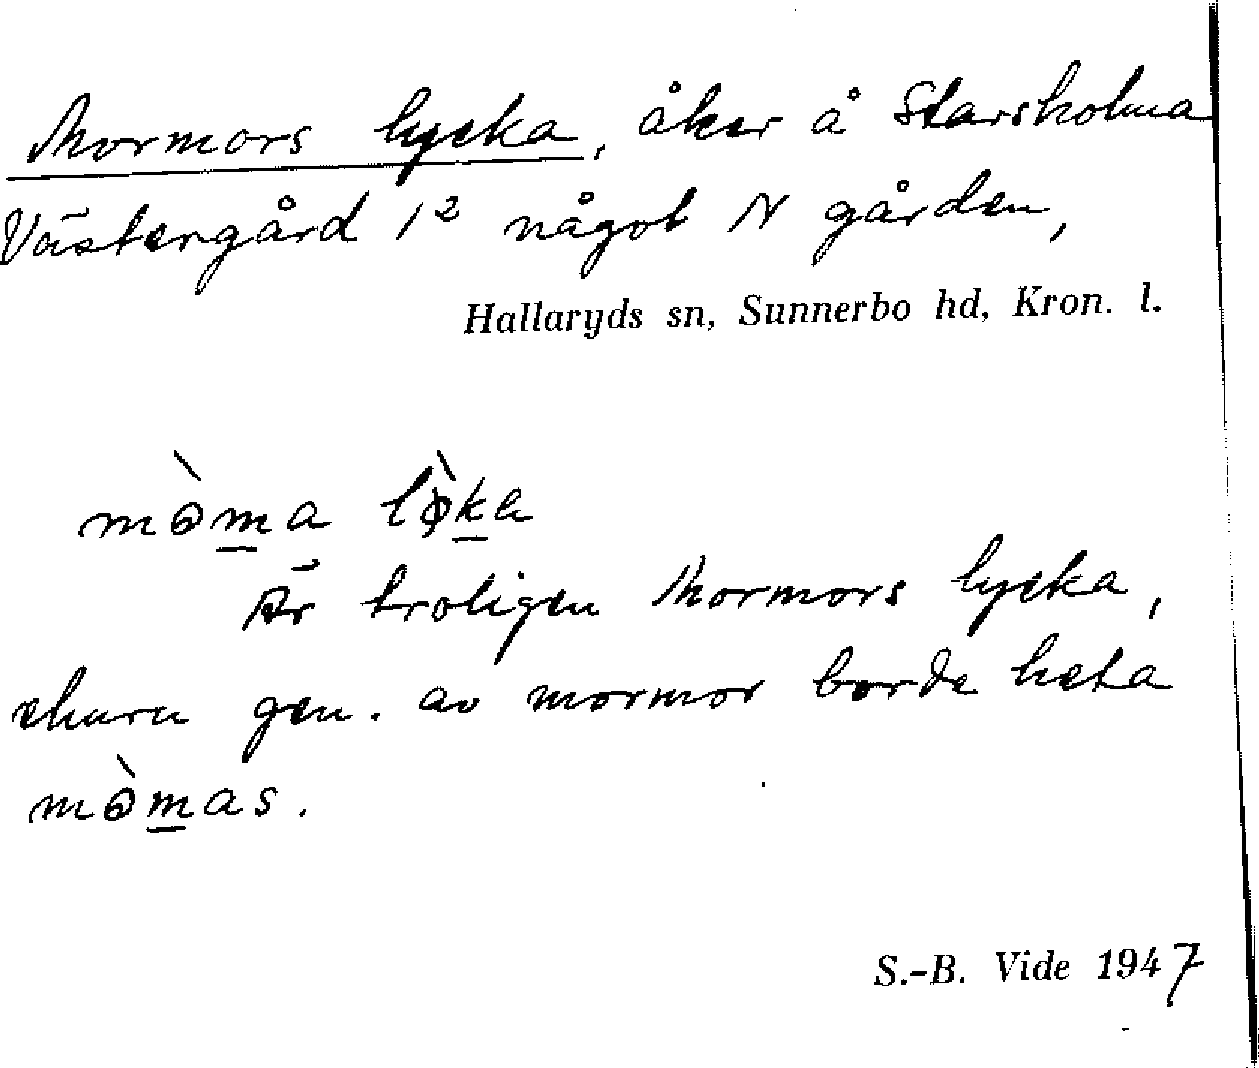 Mormors lycka, åker å Starsholma
Västergård 1² något N gården,
Hallaryds sn, Sunnerbo hd, Kron. l.
mòm̲a lø̀k̲a
Är troligen Mormors lycka,
ehuru gen. av mormor borde heta
mòm̲as.
S.-B. Vide 1947